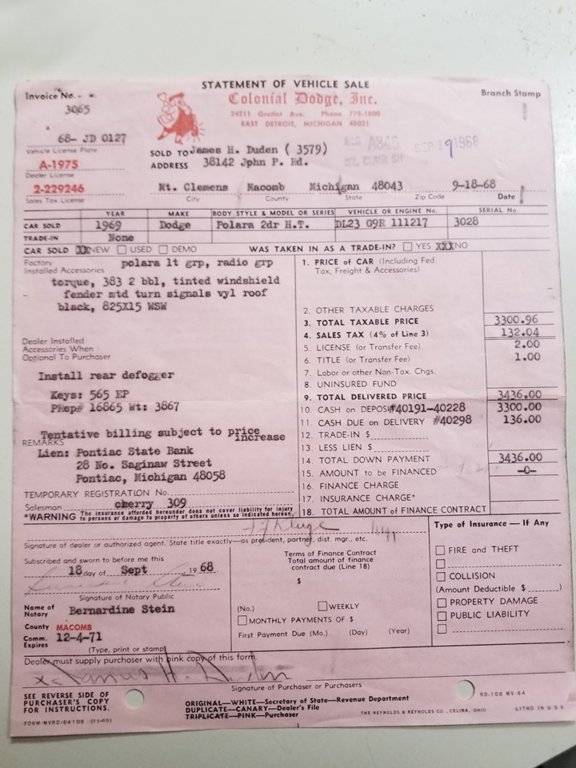 STATEMENT OF VEHICLE SALE
Invoice No.
3065
Colonial Dodge, Inc.
Branch Stamp
24211 Gratiot Ave. Phone 778-1800
EAST DETROIT, MICHIGAN 48021
68- JD 0127
Vehicle License Plate
SOLD TO James H. Duden ( 3579)
A-1975
ADDRESS 38142 John P. Rd.
Dealer License
2-229246
Mt. Clemens Macomb Michigan 48043 9-18-68
Sales Tax License
City County State Zip Code Date
YEAR MAKE BODY STYLE & MODEL OR SERIES VEHICLE OR ENGINE No. SERIAL No.
CAR SOLD 1969 Dodge Polara 2dr H.T. DL23 G9R 111217 3028
TRADE-IN None
CAR SOLD XX NEW USED DEMO WAS TAKEN IN AS A TRADE-IN? YES XXX NO
Factory Installed Accessories
polara lt grp, radio grp
torque, 383 2 bbl, tinted windshield
fender mtd turn signals vyl roof
black, 825X15 WSW
1. PRICE of CAR (Including Fed.
Tax, Freight & Accessories)
2. OTHER TAXABLE CHARGES
3. TOTAL TAXABLE PRICE 3300.96
4. SALES TAX (4% of Line 3) 132.04
5. LICENSE (or Transfer Fee) 2.00
6. TITLE (or Transfer Fee) 1.00
7. Labor or other Non-Tax. Chgs.
8. UNINSURED FUND
9. TOTAL DELIVERED PRICE 3436.00
10. CASH on DEPOSIT #40191-40228 3300.00
11. CASH DUE on DELIVERY #40298 136.00
12. TRADE-IN $
13. LESS LIEN $
14. TOTAL DOWN PAYMENT 3436.00
15. AMOUNT to be FINANCED -0-
16. FINANCE CHARGE
17. INSURANCE CHARGE*
18. TOTAL AMOUNT of FINANCE CONTRACT
Dealer Installed
Accessories When
Optional To Purchaser
Install rear defogger
Keys: 565 EP
16865 Wt: 3867
Tentative billing subject to price
increase
REMARKS
Lien: Pontiac State Bank
28 No. Saginaw Street
Pontiac, Michigan 48058
TEMPORARY REGISTRATION No.
Salesman cherry 309
*WARNING The insurance afforded hereunder does not cover liability for injury
to persons or damage to property of others unless so indicated hereon.
Signature of dealer or authorized agent. State title exactly—as president, partner, dist. mgr., etc.
Subscribed and sworn to before me this
18 day of Sept 1968
Signature of Notary Public
Name of
Notary Bernardine Stein
County MACOMB
Comm.
Expires 12-4-71
(Type, print or stamp)
Terms of Finance Contract
Total amount of finance
contract due (Line 18)
$
(No.) WEEKLY
MONTHLY PAYMENTS OF $
First Payment Due (Mo.) (Day) (Year)
Type of Insurance — If Any
FIRE and THEFT
COLLISION
(Amount Deductible $ )
PROPERTY DAMAGE
PUBLIC LIABILITY
Dealer must supply purchaser with pink copy of this form.
x James H. Duden
Signature of Purchaser or Purchasers
SEE REVERSE SIDE OF
PURCHASER'S COPY
FOR INSTRUCTIONS.
ORIGINAL—WHITE—Secretary of State—Revenue Department
DUPLICATE—CANARY—Dealer's File
TRIPLICATE—PINK—Purchaser
RD-108 MV-64
THE REYNOLDS & REYNOLDS CO., CELINA, OHIO
LITHO IN U.S.A.